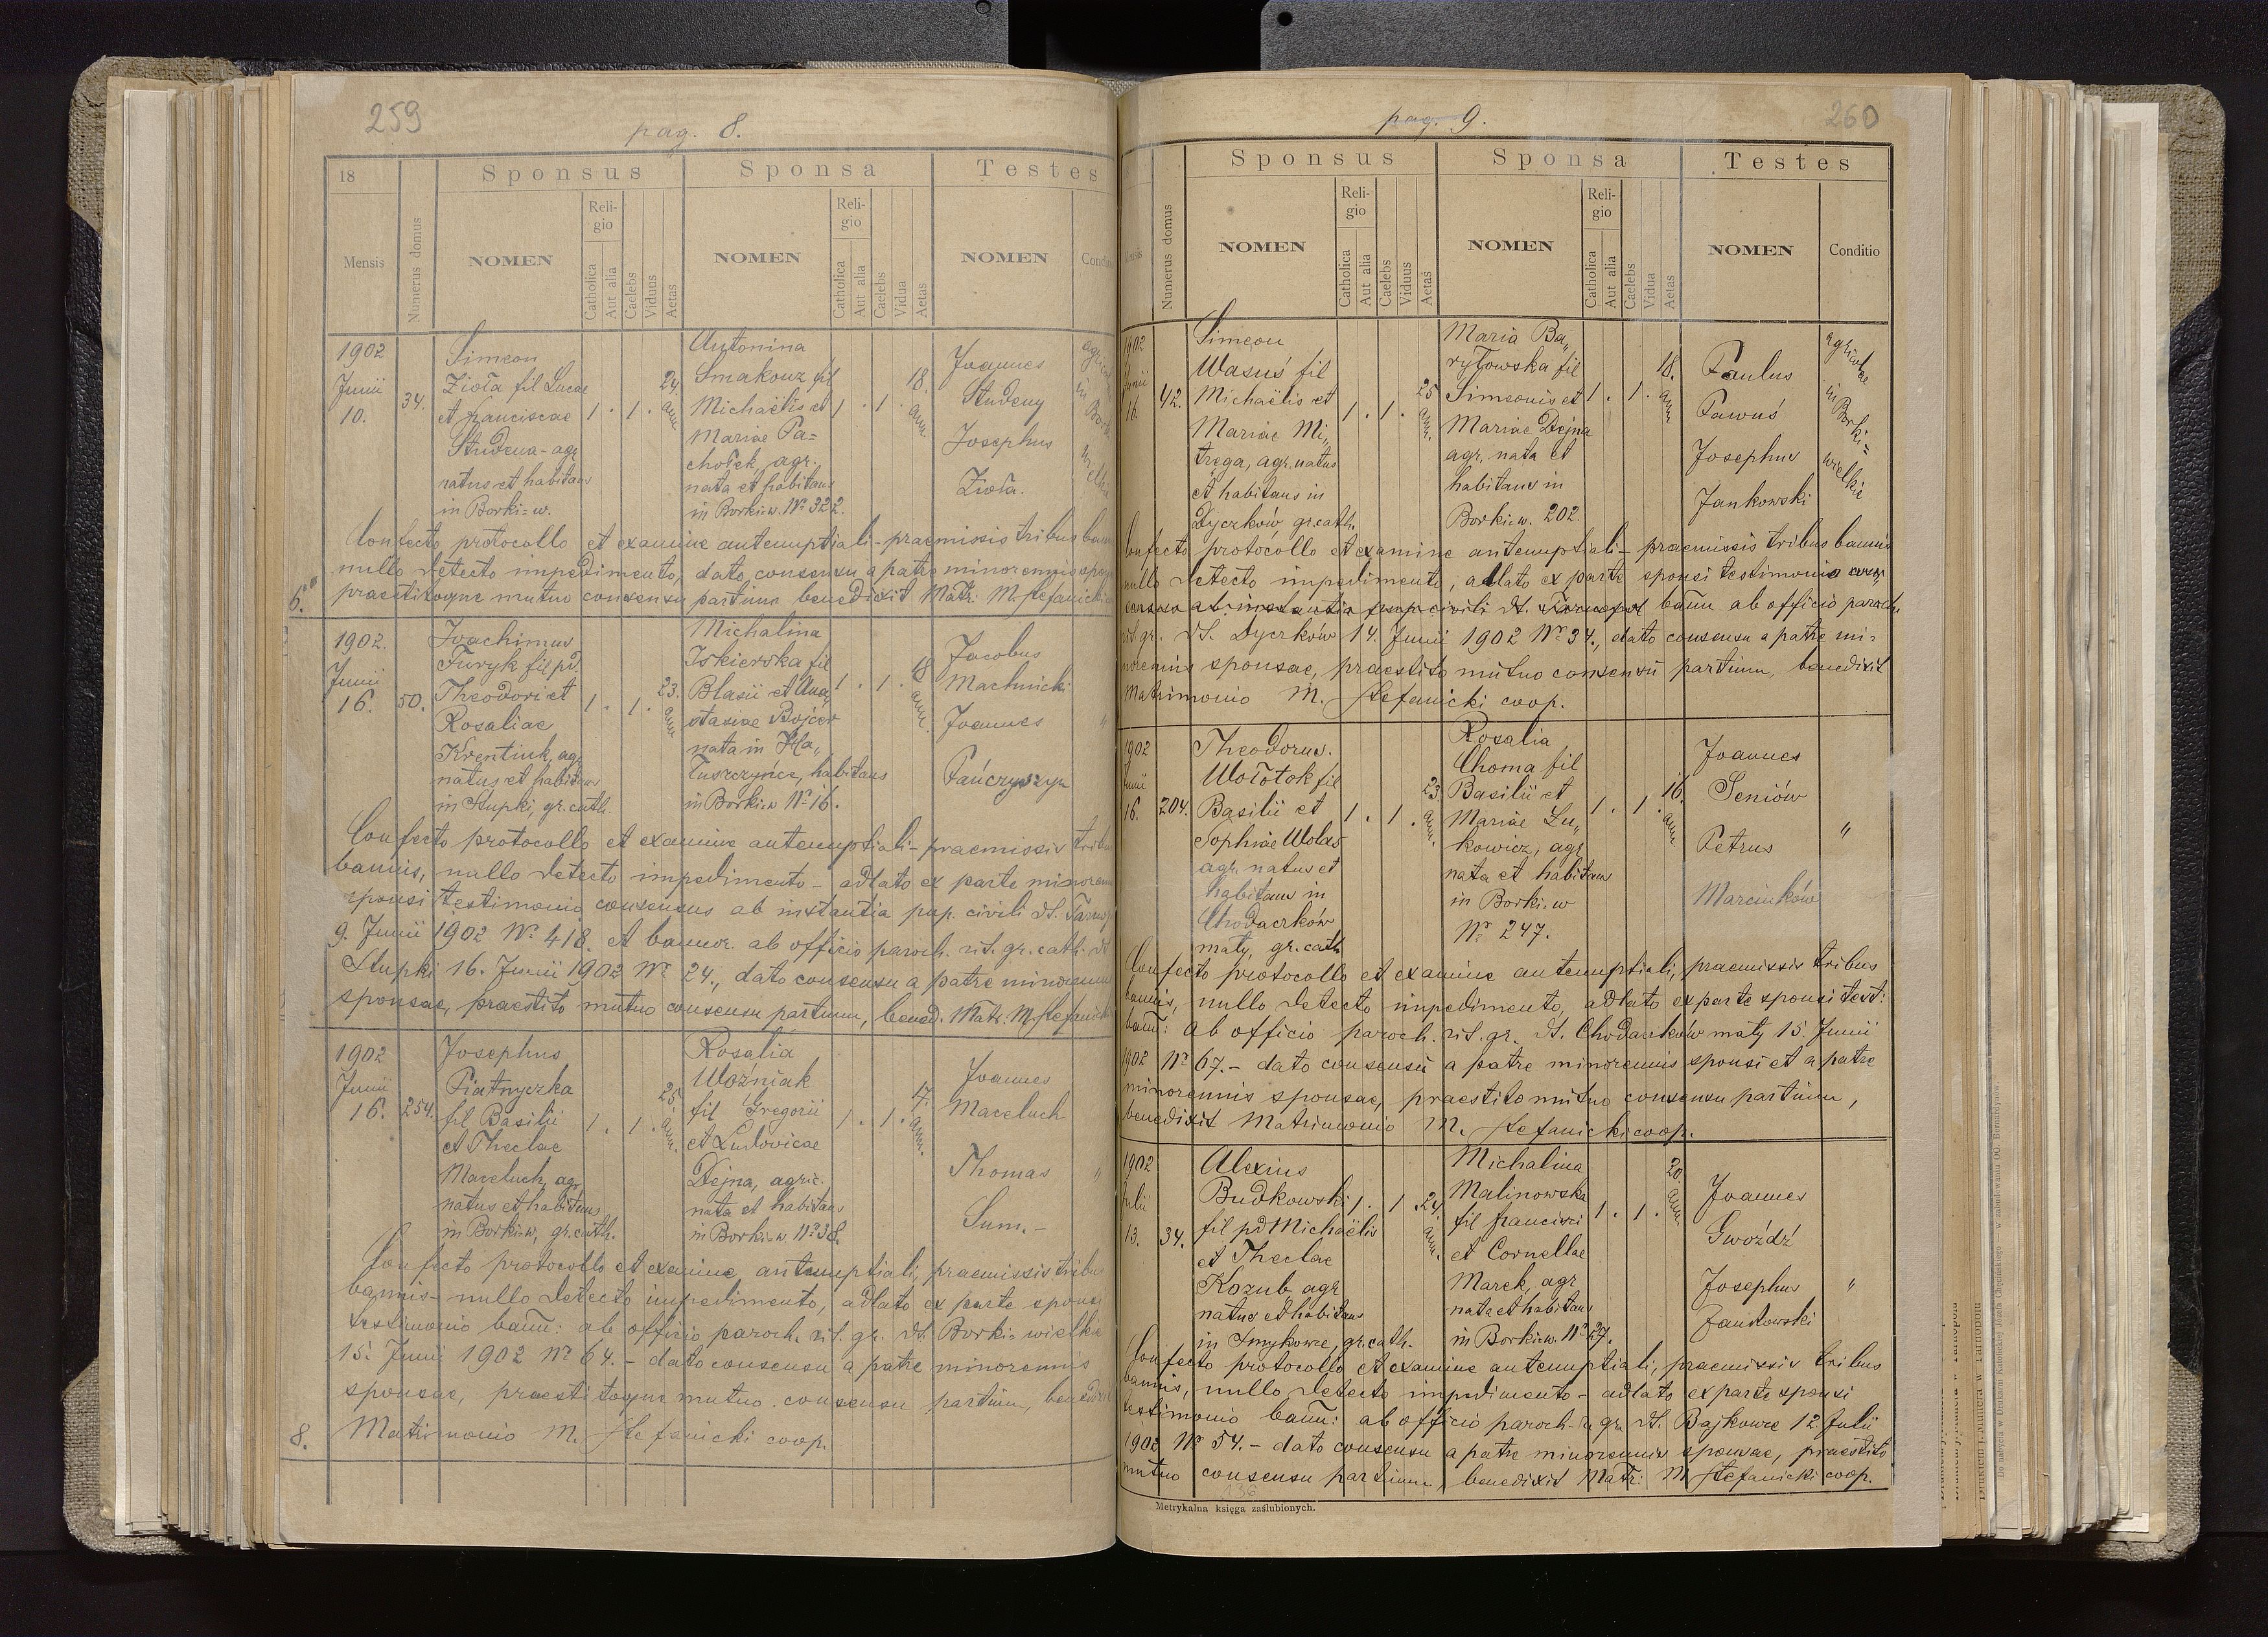 259
pag. 8.
18
Sponsus
Sponsa
Testes
Mensis
Numerus domus
NOMEN
Religio
Catholica
Aut alia
Caelebs
Viduus
Aetas
NOMEN
Religio
Catholica
Aut alia
Caelebs
Vidua
Aetas
NOMEN
1902
Junii
10.
34.
Simeon
Zioła fil Lucae
et Franciscae
Studena - agr
natus et habitans
in Borki = w.
1 . 1 .
24 ann.
Antonina
Smakouz fil
Michaëlis et
Mariae Pa=
chołek, agr.
nata et habitans
in Borki w. Nº 322.
1 . 1 .
18. ann.
Joannes
Studeny
Josephus
Zioła.
Confecto protocollo et examine antenuptiali - praemissis tribus
nullo detecto impedimento, dato consensu a patre minorennis
praestitoque mutuo consensu partium benedixit Matr: M. Stefanicki
6.
1902.
Junii
16.
50.
Joachimus
Furyk fil pd.
Theodori et
Rosaliae
Krentiuk, agr
natus et habitans
in Stupki, gr. cath.
1 . 1 .
23. ann.
Michalina
Iskierska fil
Blasii et Ana„
stasiae Bojcer
nata in Ha„
łuszczyńce, habitans
in Borki w Nº 16.
1 . 1 .
18 ann.
Jacobus
Machnicki
Joannes
Pańczyszyn
"
Confecto protocollo et examine antenuptiali - praemissis
bannis, nullo detecto impedimento - adlato ex parte
sponsi testimonio consensus ab instantia pup. civili dt.
9. Junii 1902 Nº 418. et bannor. ab officio paroch. rit. gr. cath. dt
Stupki 16. Junii 1902 Nº 24., dato consensu a patre
sponsae, praestito mutuo consensu partium, bened. Matr. M. Stefanicki
1902
Junii
16.
254.
Josephus
Piatnyczka
fil Basilii
et Theclae
Maceluch, agr
natus et habitans
in Borki w, gr. cath.
1 . 1 .
25. ann.
Rosalia
Woźniak
fil Gregorii
et Ludovicae
Dejna, agric.,
nata et habitans
in Borki w. Nº 38.
1 . 1 .
17. ann.
Joannes
Maceluch
Thomas
Sum. -
"
Confecto protocollo et examine antenuptiali, praemissis
bannis - nullo detecto impedimento, adlato ex parte
testimonio bann: ab officio paroch. rit. gr. dt. Borki wielkie
15. Junii 1902 Nº 64. - dato consensu a patre minorennis
sponsae, praestitoque mutuo consensu partium,
8. Matrimonio M. Stefanicki coop.
pag. 9.
260
Sponsus
Sponsa
Testes
Numerus domus
NOMEN
Religio
Catholica
Aut alia
Caelebs
Viduus
Aetas
NOMEN
Religio
Catholica
Aut alia
Caelebs
Vidua
Aetas
NOMEN
Conditio
1902
Junii
16.
42.
Simeon
Wasuś fil
Michaëlis et
Mariae Mi„
tręga, agr. natus
et habitans in
Dyczków gr. cath.
1 . 1 .
25 ann.
Maria Ba„
ryłowska fil
Simeonis et
Mariae Dejna
agr. nata et
habitans in
Borki w. 202.
1 . 1 .
18. ann
Paulus
Pawuś
Josephus
Jankowski
agricolae
in Borki=
wielkie
Confecto protocollo et examine antenuptiali - praemissis tribus bannis
nullo detecto impedimento, adlato ex parte sponsi testimonio
ab instantia pup. civili dt. bann ab officio paroch.
rit. gr. dt. Dyczków 14. Junii 1902 Nº 34., dato consensu a patre mi-
norennis sponsae, praestito mutuo consensu partium, benedixit
Matrimonio M. Stefanicki coop.
1902
Junii
16.
204.
Theodorus.
Wołotok fil
Basilii et
Sophiae Wolas
agr. natus et
habitans in
Chodaczków
mały, gr. cath
1 . 1 .
23 ann.
Rosalia
Choma fil
Basilii et
Mariae Łu„
kowicz, agr
nata et habitans
in Borki w
Nº 247.
1 . 1 .
16. ann.
Joannes
Seniów
Petrus
Marcinków
"
Confecto protocollo et examine antenuptiali, praemissis tribus
bannis, nullo detecto impedimento, adlato ex parte sponsi test:
bann: ab officio paroch. rit. gr. dt. Chodaczków mały 15 Junii
1902 Nº 67. - dato consensu a patre minorennis sponsi et a patre
minorennis sponsae, praestito mutuo consensu partium,
benedixit Matrimonio M. Stefanicki coop.
1902
Julii
13.
34.
Alexius
Budkowski
fil pd Michaëlis
et Theclae
Kozub agr
natus et habitans
in Smykowce, gr. cath.
1 . 1 .
24. ann.
Michalina
Malinowska
fil Francisci
et Cornellae
Marek, agr
nata et habitans
in Borki w. Nº 27.
1 . 1 .
20 ann.
Joannes
Gwóźdź
Josephus
Jankowski
"
Confecto protocollo et examine antenuptiali, praemissis tribus
bannis, nullo detecto impedimento - adlato ex parte sponsi
testimonio bann: ab officio paroch. r. gr. dt. Bajkowce 12. Julii
1902 Nº 54. - dato consensu a patre minorennis sponsae, praestito
mutuo consensu partium, benedixit Matr: M Stefanicki coop.
136
Metrykalna księga zaślubionych.